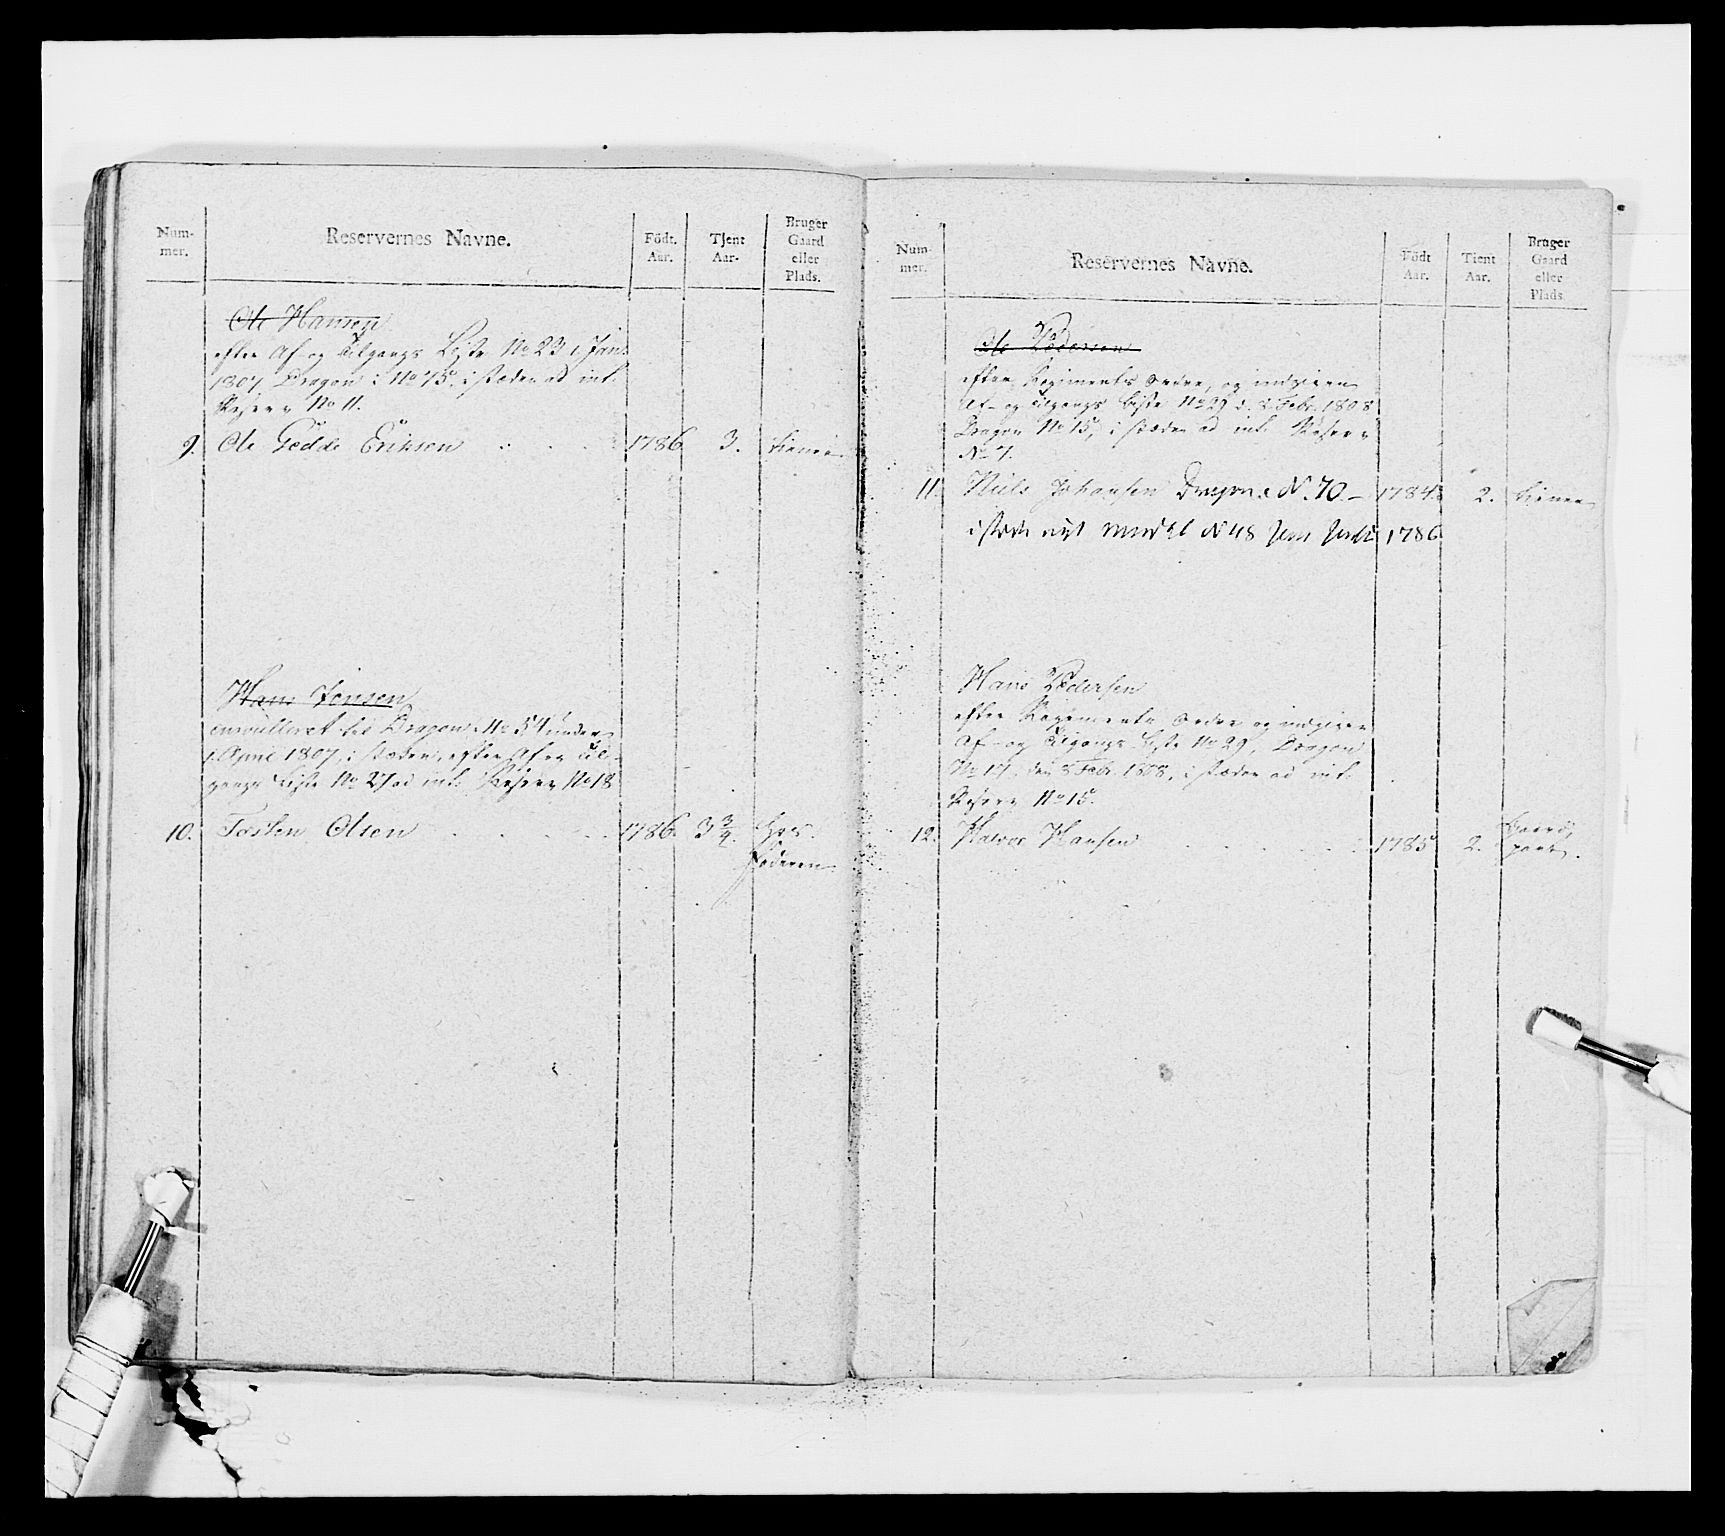 Num-
mer.
Reservernes Navne.
Födt.
Aar.
Tjent
Aar.
Bruger
Gaard
eller
Plads.
Ole Hansen
efter Af- og Tilgangs Liste No 23 1 Jan:
1807 Dragon i No 75, i stæden ad int:
Reserv No 11.
9. Ole Gedde Eriksen 1786 3. tiener
Hans Jensen
enroulleret til Dragon No 54 under
1 April 1807, i stæden, efter Af og Til-
gangs Liste No 27 ad int: Reserv No 18
10. Torsten Olsen 1786 3 3/4. Hos
Faderen
Num-
mer.
Reservernes Navne.
Födt
Aar.
Tient
Aar.
Bruger
Gaard
eller
Plads.
Ole Pedersen
efter Regiments Ordre, og indgiven
Af- og Tilgangs Liste No 29 d. 8 Febr. 1808
Dragon No 15, i stæden ad int: Reserv
No 7.
11. Niels Johansen Dragon N. 70. – 1784. 2. tiener
i stæden N 48 1786
Hans Pedersen
efter Regiments Ordre og indgiven
Af- og Tilgangs Liste No 29, Dragon
No 17, den 8 Febr. 1808, i stæden ad int:
Reserv No 15.
12. Halvor Hansen 1785 2. Gaard,
part.